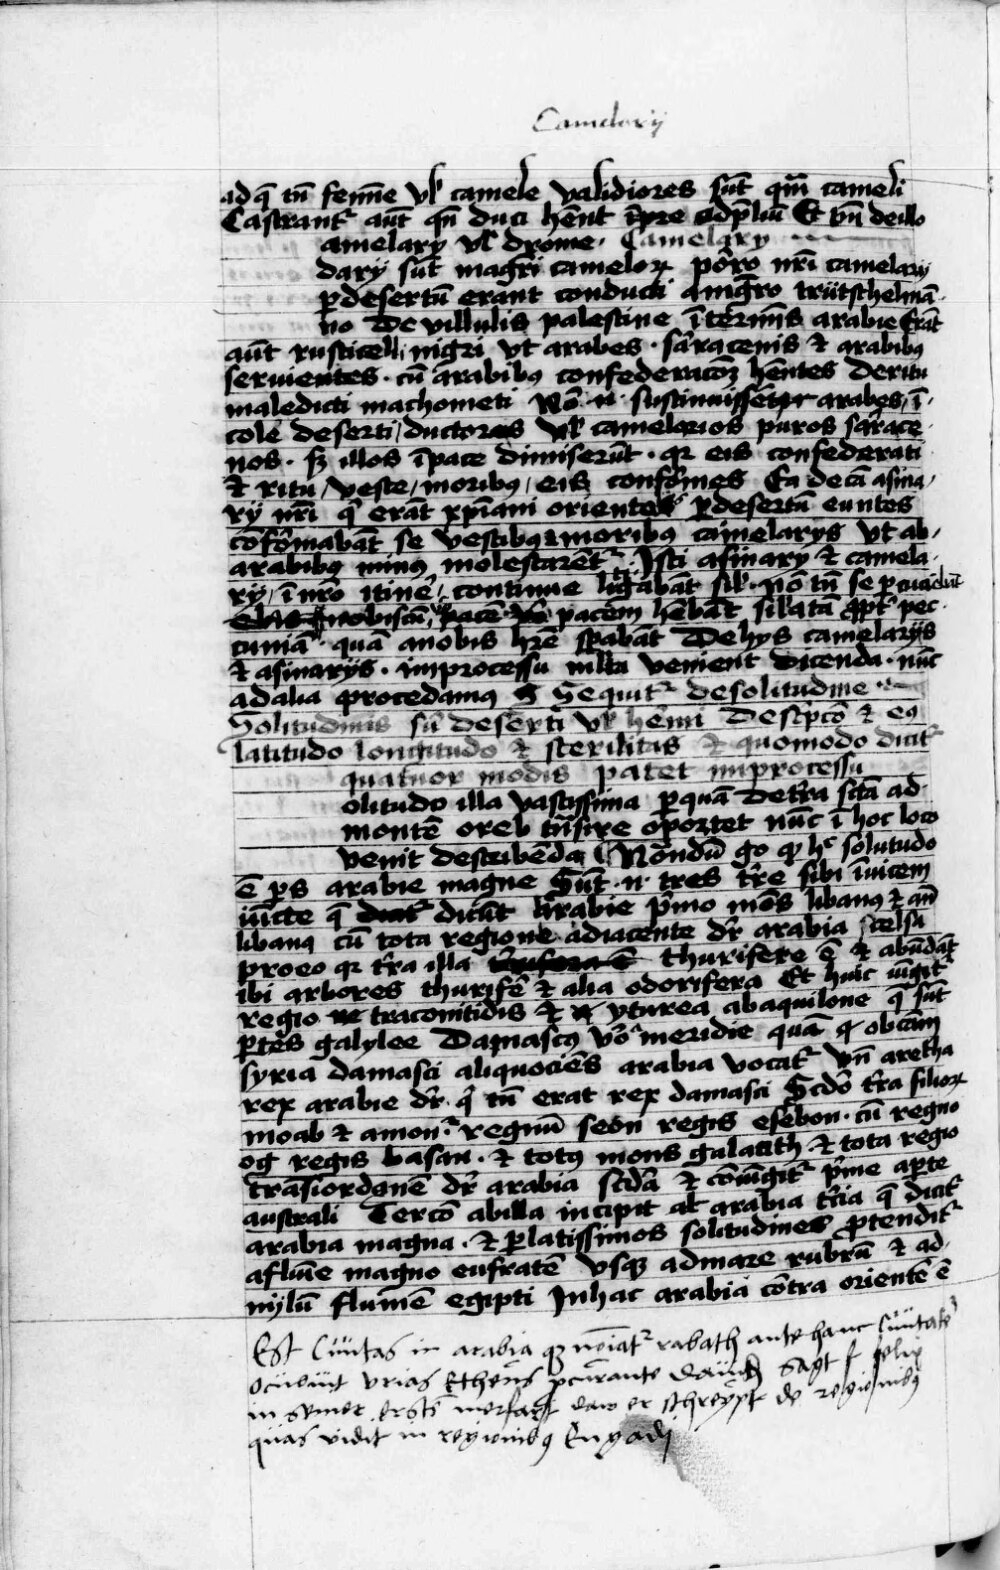 Camelarij
adq̄ tn̄ femīe vl̓ camele validiores sūt qm̄ cameli
Castrantʳ aūt qn̄ duci hēnt īpre adp̄liū Et vn̄ de illo
amelary vl̓ drome· Camelary
dary sūt magr̄i cameloꝝ porro nr̄i camelary
ꝑ desertū erant conducti a mgr̄o trütschelmā
no De villulis palestine ī termīs arabie Erāt
aūt rusticelli nigri vt arabes · saracenis ⁊ arabibꝯ
seruientes · cū arabibꝯ confederacōꝫ hēntes de ritu
maledicti machometi Nō ·n· sustinuissēt arabes ī·
cole deserti / ductores vl̓ camelarios puros sarace
nos · sꝫ illos ī pace dimiserūt · qꝛ eis confederati
⁊ ritu / veste / moribꝯ / eis confōrmes Ea de cā asina/
ry nr̄i q̓ erāt xp̄iani orientales ꝑ desertū euntes
cōfōrmabāt se vestibꝯ ⁊ moribꝯ camelarys vt ab/
arabibꝯ minꝯ molestarētʳ Isti asinary ⁊ camela·
ry / ī nr̄o itiner̄ · continue litigabāt sil̓ · nō tn̄ se percuciebāt
nobiscū pacem hēbāt sil̓atā ꝓptʳ pec·
cuniā · quā a nobis hr̄e sꝑabāt De hys camelarijs
⁊ asinarijs · in processu ml̓ta venient dicenda · nūc
ad alia procedamꝯ ¶ Sequitʳ de solitudine
Solitudinis siu̓ deserti vl̓ hēmi Descripcō ⁊ eꝯ
latitudo longitudo ⁊ sterilitas ⁊ quomodo dicitʳ
quatuor modis patet in processu
olitudo illa vastissima ꝑ quā de tr̄ra sctā ad·
montē oreb tn̄sire oportet nūc ī hoc loco
venit describēda Nōtandū go ꝙ hᶜ solitudo
ē ꝑs arabie magne Sūt ·n· tres tr̄re sibi īuicem
iūcte q̄ dicūt Arabie pʳmo mōs libanꝯ ⁊ an̄
libanꝯ cū tota regione adiacente dr̄ arabia scelsa
proeo qꝛ tr̄ra illa thurifere ē ⁊ abūdāt
ibi arbores thurifē ⁊ alia odorifera Et huic iūgitʳ
regio traconitidis ⁊ yturea ab aquilone q̄ sūt
ꝑtes galylee Damascꝯ v̓o meridie quā ꝙ ob cām
syria damasci aliquociēs arabia vocatʳ vn̄ aretha
rex arabie dr̄ q̓ tn̄ erat rex damasci Scdō tr̄ra filioꝝ
moab ⁊ amon · regnū seon regis esebon · cū regno
og regis basan · ⁊ totꝯ mons galaath · ⁊ tota regio
trāsiordanē dr̄ arabia scdā ⁊ cōiūgitʳ pʳme a ꝑte
australi Tercō abilla incipit al̓ arabia tr̄cia q̄ dicitʳ
arabia magna · ⁊ ꝑ latissimos solitudines ꝓtenditʳ
a flūīe magno eufratē vsqꝫ ad mare rubrū ⁊ ad
nylū flumē egipti In hac arabia cōtra orientē ē
Est Ciuitas in arabia quae nōīatʳ rabath ante hanc Ciuitatē
ocubuit vrias Etheus procurante dauid sagt f felix
in seiner ersten merfart daw er schreypt de regionibꝯ
quas vidit in regionibꝯ Engadi